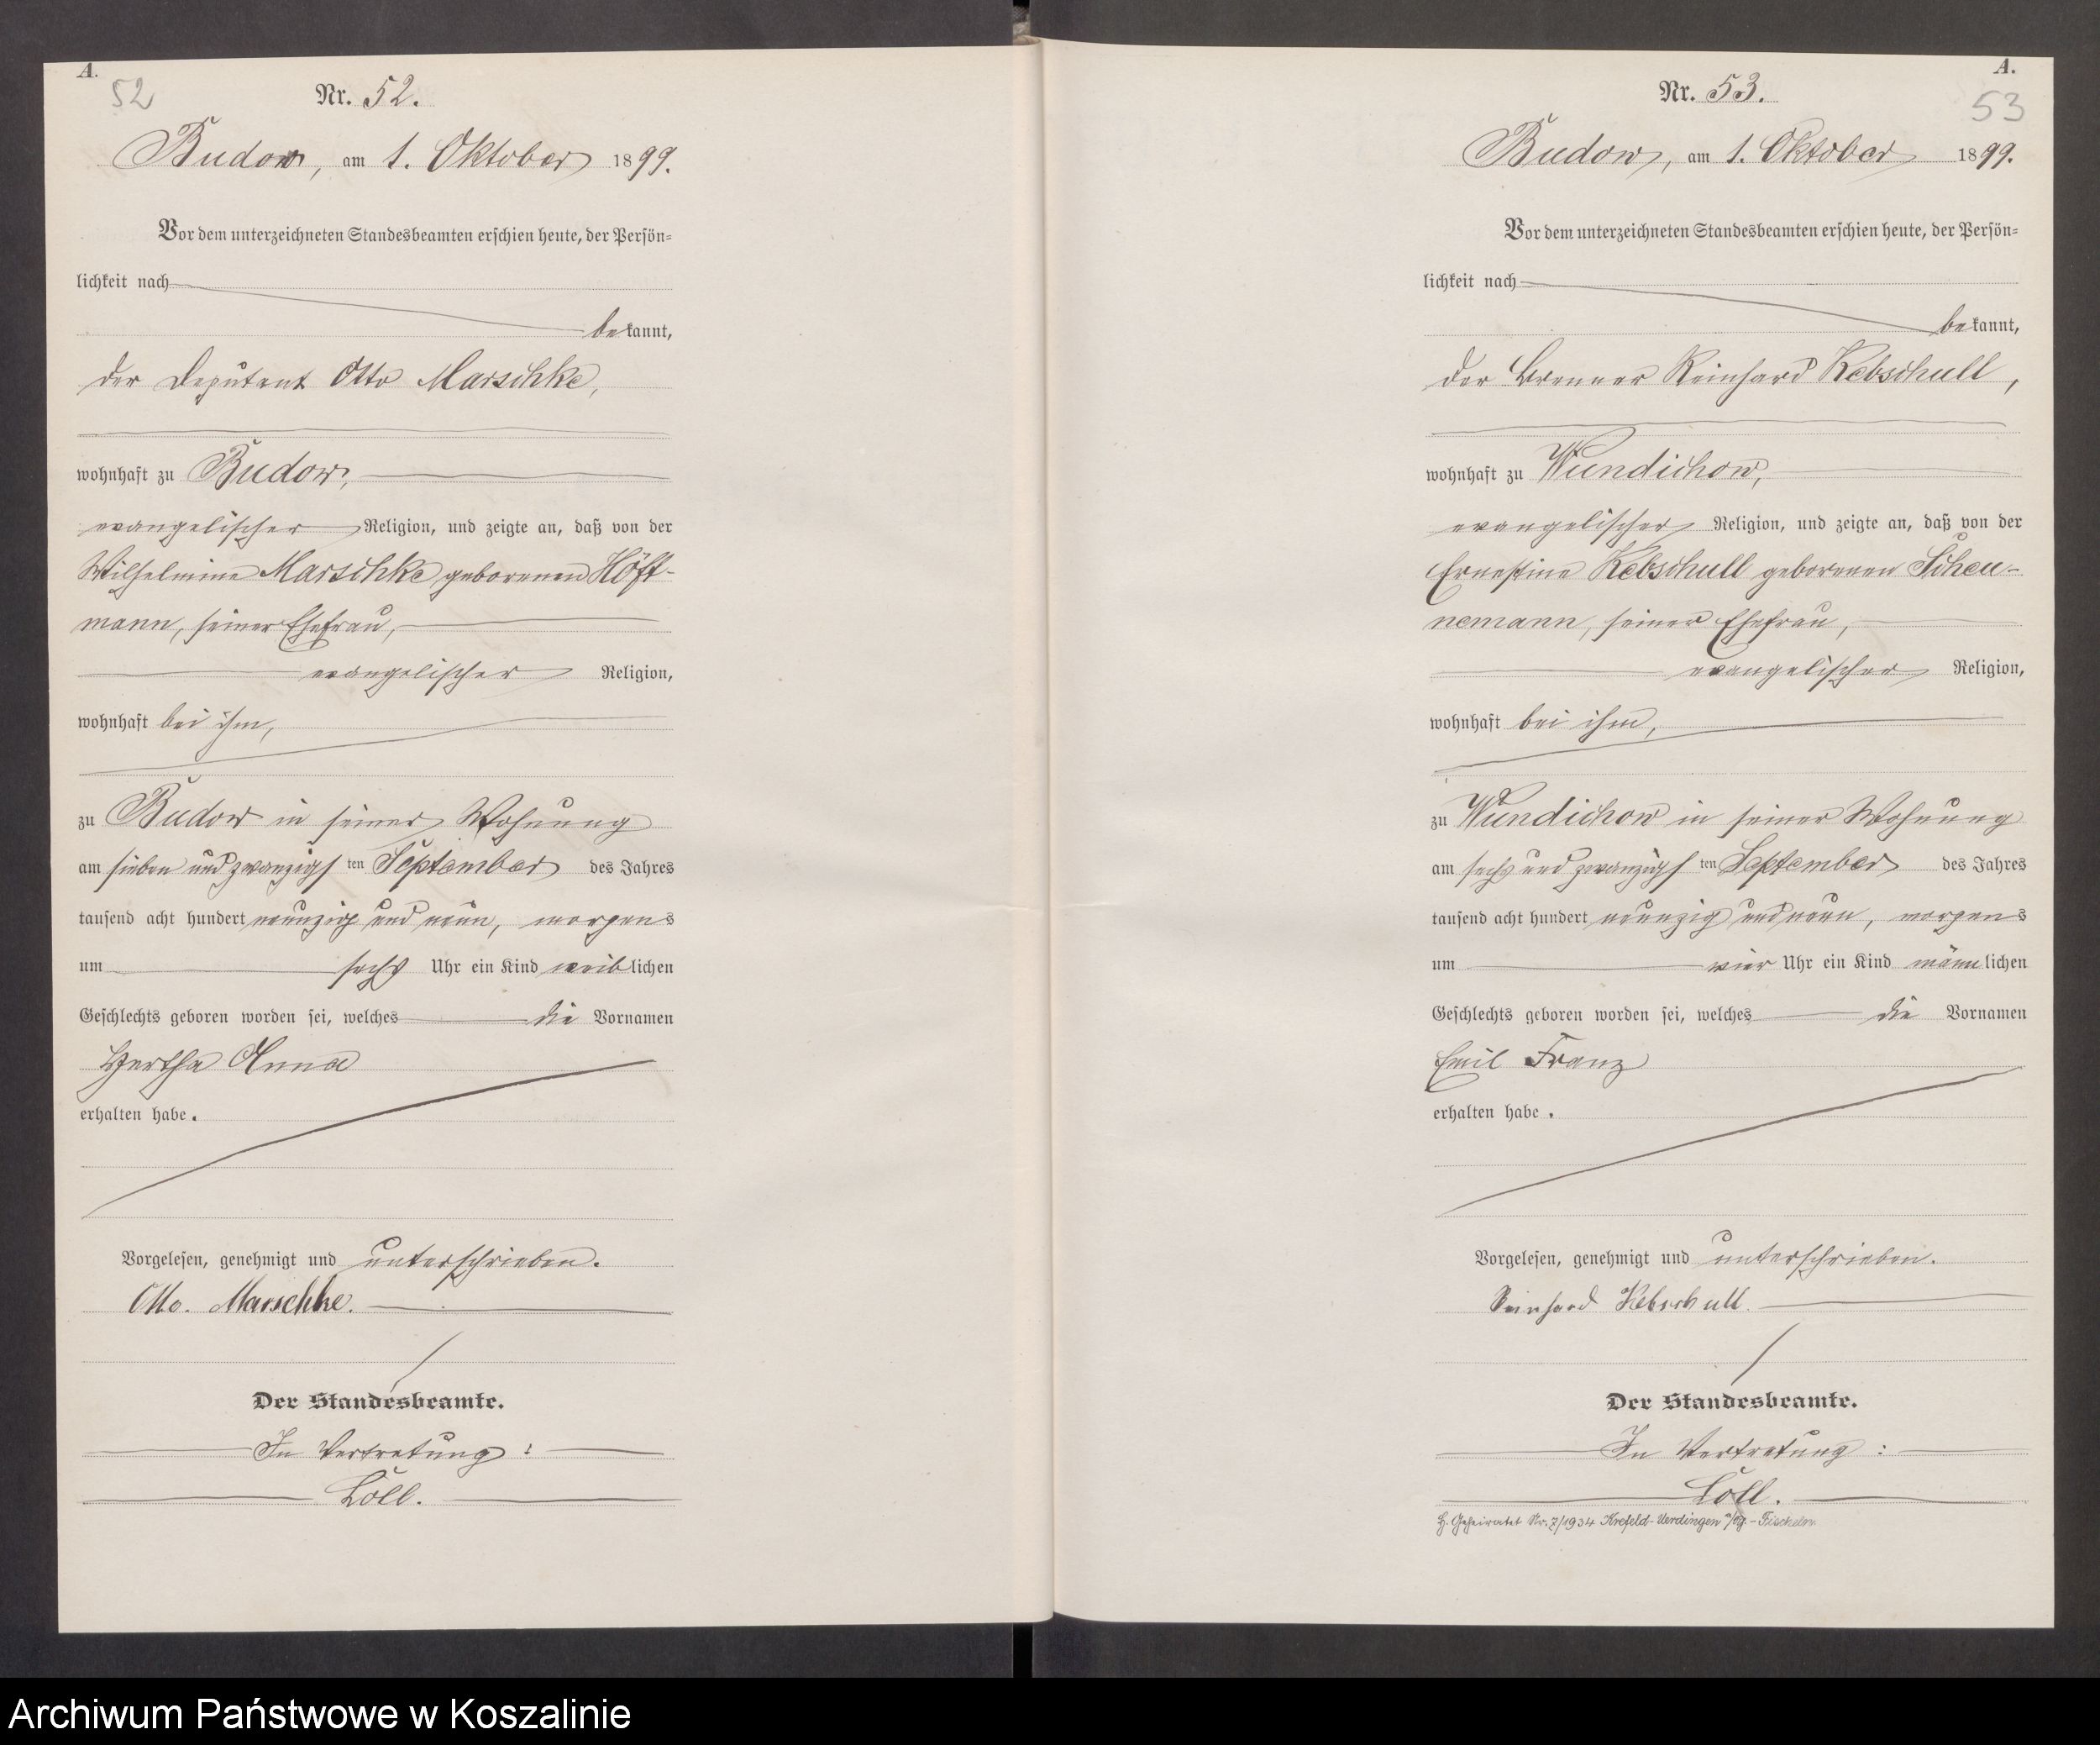 A.
52
Nr. 52.
Budow, am 1. Oktober 1899.
Vor dem unterzeichneten Standesbeamten erschien heute, der Persön=
lichkeit nach
bekannt,
der Deputant Otto Marschke,
wohnhaft zu Budow,
evangelischer Religion, und zeigte an, daß von der
Wilhelmine Marschke geborenen Höft-
mann, seiner Ehefrau,
evangelischer Religion,
wohnhaft bei ihm,
zu Budow in seiner Wohnung
am sieben und zwanzigsten September des Jahres
tausend acht hundert neunzig und neun, morgens
um sechs Uhr ein Kind weiblichen
Geschlechts geboren worden sei, welches die Vornamen
Hertha Anna
erhalten habe.
Vorgelesen, genehmigt und unterschrieben.
Otto. Marschke.
Der Standesbeamte.
In Vertretung:
Löll.
A.
53
Nr. 53.
Budow, am 1. Oktober 1899.
Vor dem unterzeichneten Standesbeamten erschien heute, der Persön=
lichkeit nach
bekannt,
der Brenner Reinhard Kebschull,
wohnhaft zu Wundichow,
evangelischer Religion, und zeigte an, daß von der
Ernestine Kebschull geborenen Scheu-
nemann, seiner Ehefrau,
evangelischer Religion,
wohnhaft bei ihm,
zu Wundichow in seiner Wohnung
am sechs und zwanzigsten September des Jahres
tausend acht hundert neunzig und neun, morgens
um vier Uhr ein Kind männlichen
Geschlechts geboren worden sei, welches die Vornamen
Emil Franz
erhalten habe.
Vorgelesen, genehmigt und unterschrieben.
Reinhard Kebschull.
Der Standesbeamte.
In Vertretung:
Löll.
Geheiratet Nr. 7/1934 Krefeld-Uerdingen
Archiwum Państwowe w Koszalinie